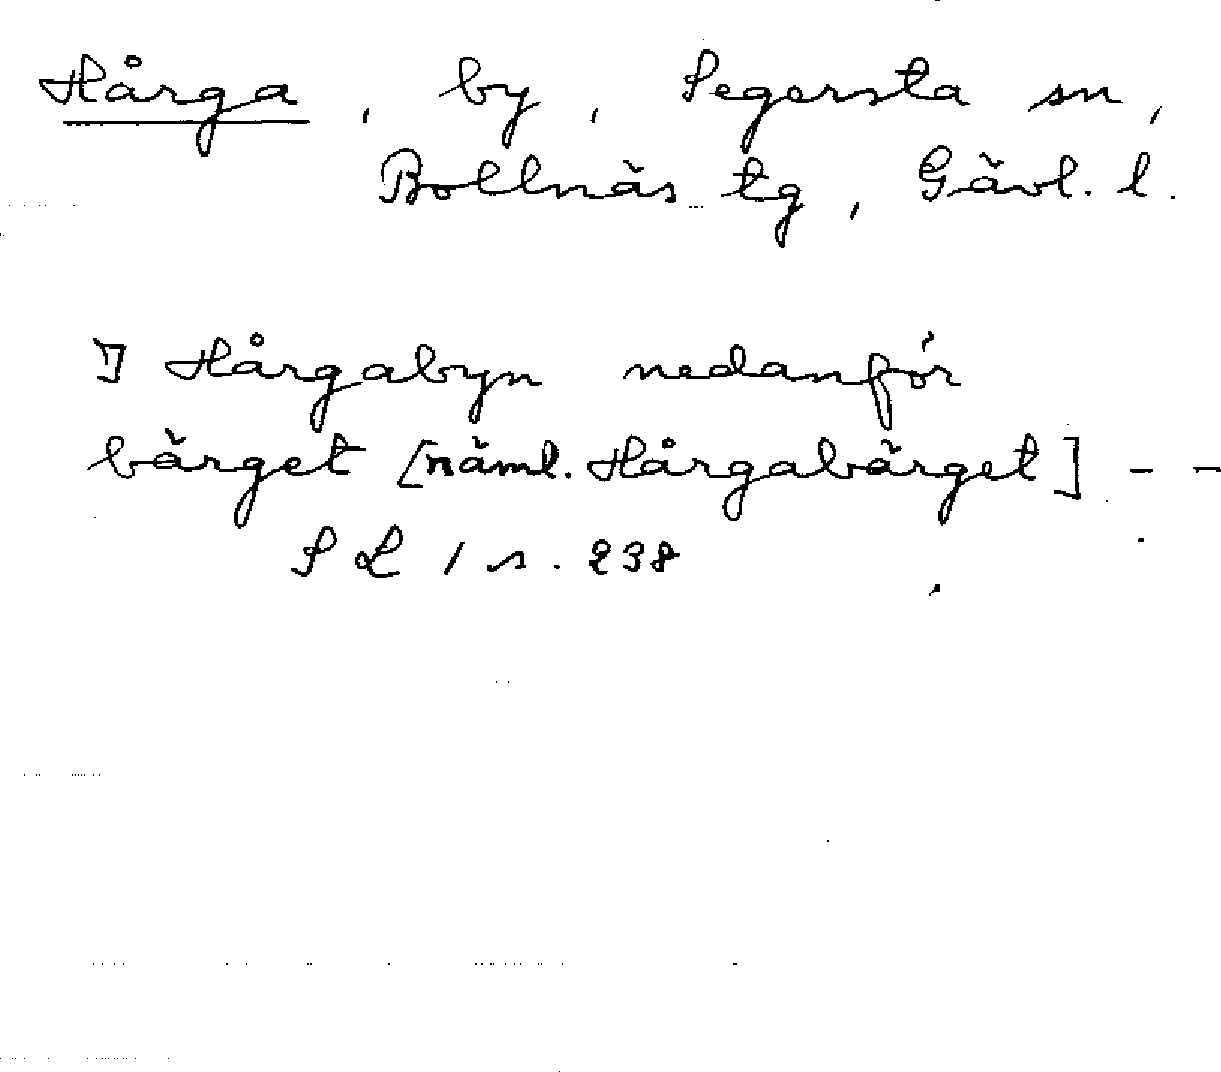 Hårga, by, Segersta sn,
Bollnäs tg, Gävl. l.
I Hårgabyn nedanför
bärget [näml. Hårgabärget] - -
SL 1 s. 238